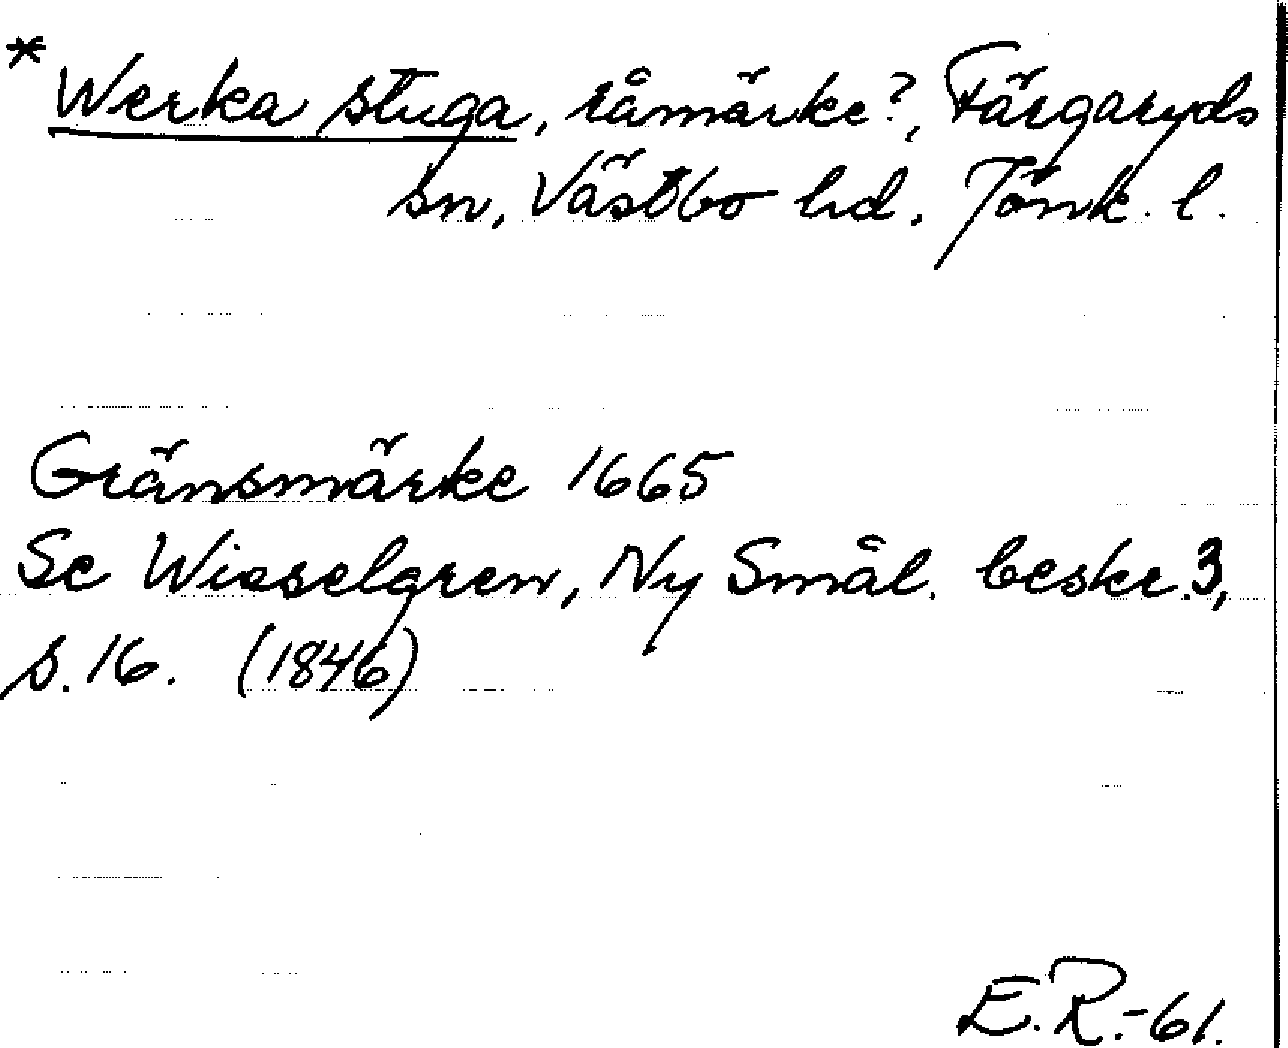 *
Werka stuga, råmärke?, Färgaryds
sn, Västbo hd. Jönk. l.
Gränsmärke 1665
Se Wieselgren, Ny Smål. beskr. 3,
s. 16. (1846)
E.R.-61.